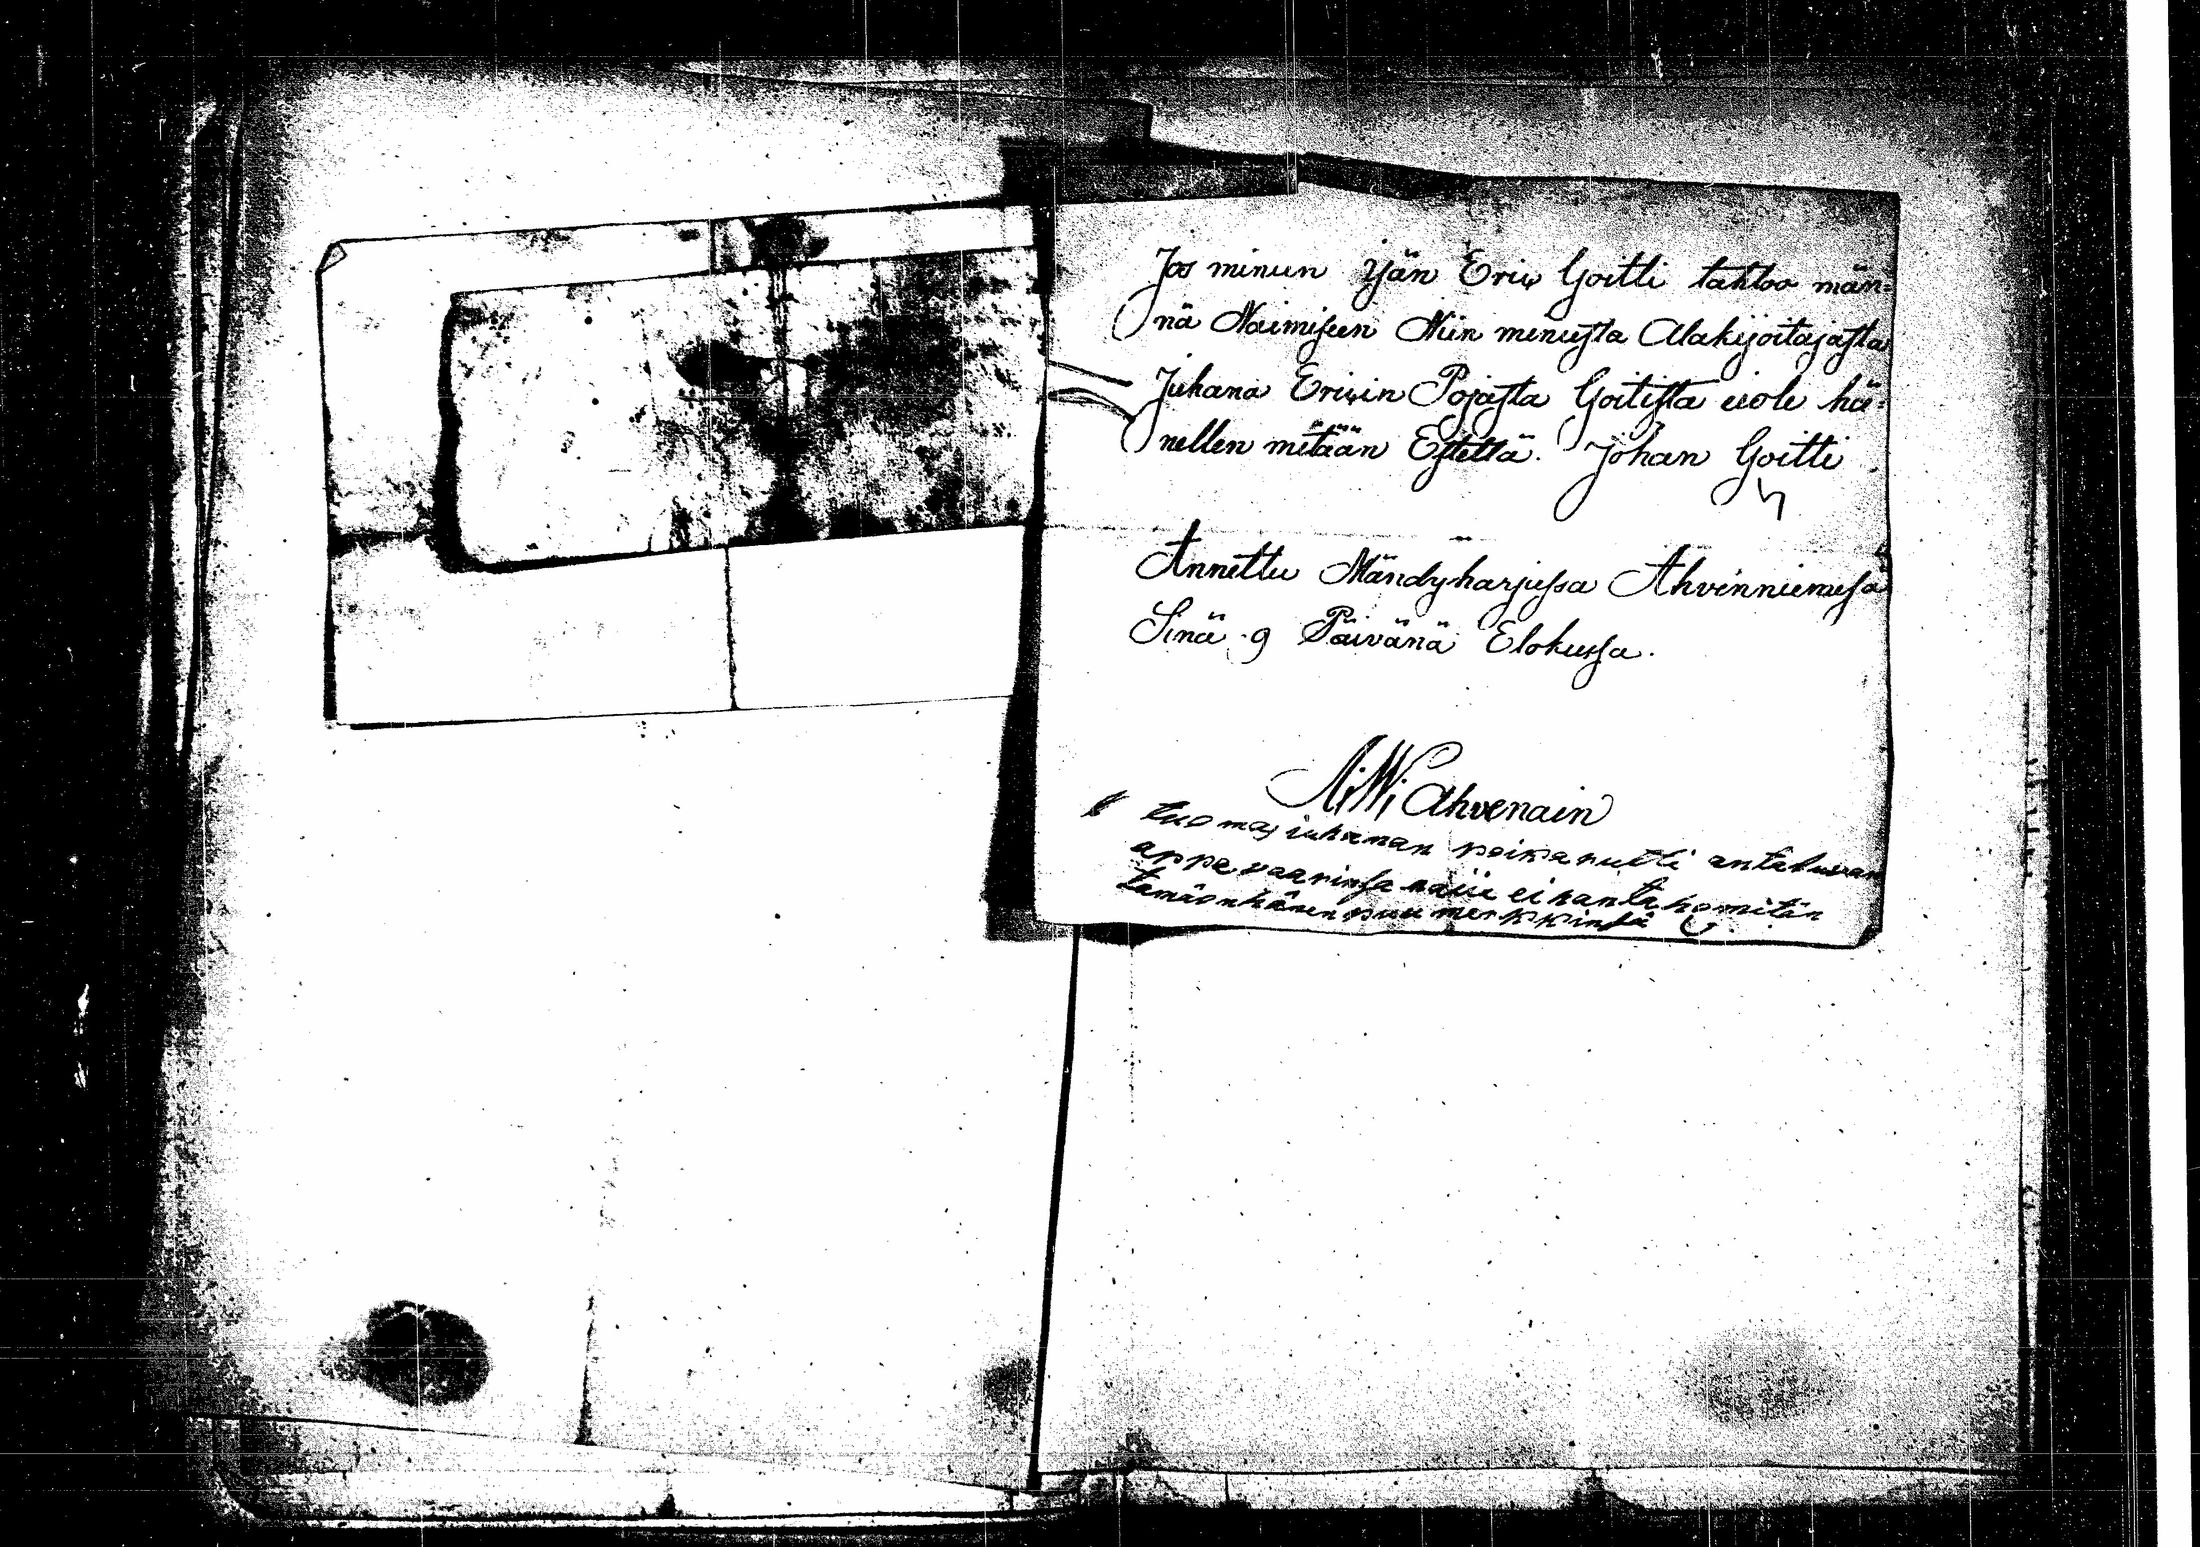 Jos minun Isän Eriw Goitti tahtoo män-
nä Naimiseen Niin minusta Alakijoitajasta
Juhana Eriwin Pojasta Goitista eiole hä-
nellen mitään Estettä. Johan Goitti
Annettu Mändyharjussa Ahvinniemessä
Sinä 9 Päivänä Elokussa.
A: W: Ahvenain
tuomas iuhanan poika nutti antaluvan
appe vaarinsa naiia ei hanta
tämäon hänen puu merkkinsä